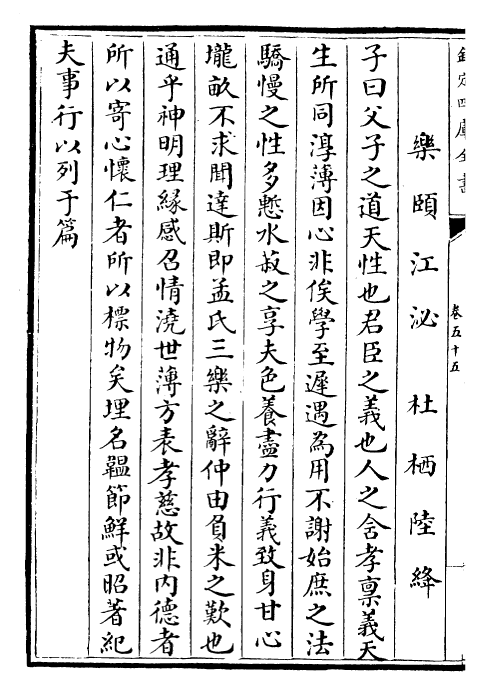 欽定四庫全書
卷五十五
樂頤江泌　杜栖陸絳
子曰父子之道天性也君臣之義也人之含孝禀義天
生所同淳薄因心非俟學至遲遇為用不謝始庶之法
驕慢之性多慙水菽之享夫色養盡力行義致身甘心
壠畝不求聞達斯即孟氏三樂之辭仲由負米之歎也
通乎神明理緣感召情澆世薄方表孝慈故非内德者
所以寄心懷仁者所以標物矣埋名韞節鮮或昭著紀
夫事行以列于篇